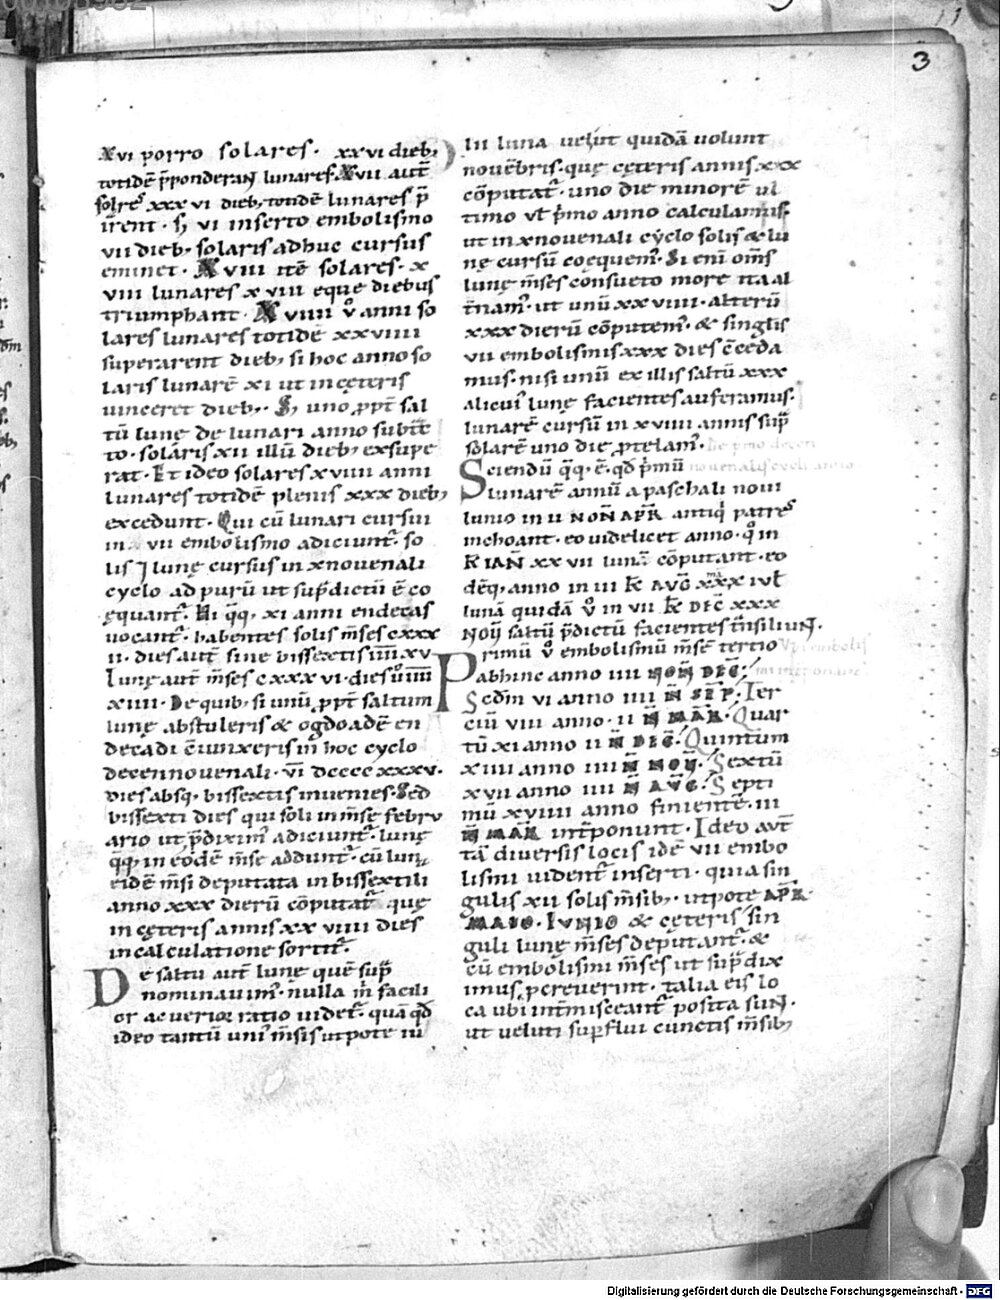 3
xvi porro solares. xxvi dieb;
totidē p̄ponderan̄ lunares. Xvii aut̄
solres xxxvi dieb; totidē lunares p̄
irent. S; vi inserto embolismo
vii dieb; solaris adhuc cursus
eminet. Xviii itē solares. x
viii lunares xviii eque diebus
triumphant. Xviiii v̊ anni so
lares lunares totidē xxviiii
superarent dieb; si hoc anno so
laris lunarē xi ut in cęteris
vinceret dieb;. S; uno ꝓpt̄ sal
tū lunę de lunari anno subt̄
to. solaris xii illū dieb; exsupe
rat. Et ideo solares xviiii anni
lunares totidē plenis xxx dieb;
excedunt. Qui cū lunari cursui
in vii embolismo adiciunt̄. so
lis & lunę cursus in xnovenali
cyclo ad purū ut sup̄dictū ē co
ęquant̄. Hi q̄q; xi anni endecas
vocant̄. habentes solis m̄ses cxxx
ii. dies aut̄ sine bissextis iiii xv
Lunę aut̄ m̄ses cxxxvi. dies v̊ iiii
xiiii. De quib; si unū ꝓpt̄ saltum
lunę abstuleris & ogdoadē en
decadi c̄iunxeris in hoc cyclo
decennovenali. vi dcccc xxxv.
dies absq; bissextis invenies. Sed
bissexti dies qui soli in m̄se febru
ario ut p̄diximꝰ adiciunt̄. lunę
q̄q; in eodē m̄se addunt̄. cū lun
eidē m̄si deputata in bissextili
anno xxx dierū cōputat̄. quę
in cęteris annis xxviiii dies
in calculatione sortit̄.
De saltu aut̄ lunę quē sup̄
nominavimꝰ. nulla m̄ facili
or ac verior ratio videt̄. quā qd̄
ideo tantū uniꝰ m̄sis utpote iu
lii luna velut quidā volunt
novēbris. quę cęteris annis xxx
cōputat̄. uno die minorē ul
timo vl̄ p̄mo anno calculamus.
ut in xnovenali cyclo solis & lu
nę cursū coequemꝰ. Si enī om̄s
lunę m̄ses consueto more ita al
t̄namꝰ. ut unū xxviiii. alterū
xxx dierū cōputemꝰ. & singlis
vii embolismis xxx dies c̄ceda
mus. nisi unū ex illis saltū xxx
alicuiꝰ lunę facientes auferamus.
lunarē cursū in xviiii annis sup̄
solarē uno die ꝓtelamꝰ. De p̄mo decen
novenalis cycli anno
Sciendū q̄q; ē. qd̄ p̄mū
lunarē annū a paschali novi
lunio in ii NON̄ APR̄ antiqi patres
inchoant. eo videlicet anno. q̊ in
K̄ IAN̄ xxvii lunā cōputant. eo
dēq; anno in iii K̄ AUG̅ xxx iul̄
lunā quidā v̊ in vii K̄ DEC̄ xxx
NOV̄ saltū p̄dictū facientes t̄nsiliun̄.
Primū v̊ embolismū m̄se tertio Vbi embolis
abhinc anno iiii NON̄ DEC̄. mi interponant̄
Scdm̄ vi anno iiii N̄ SEP̄. Ter
ciū viii anno. ii N̄ MAR̄. Quar
tū xi anno ii N̄ DEC̄. Quintum
xiiii anno iiii N̄ NOV̄. Sextū
xvii anno iiii N̄ AUG̅. Septi
mū xviiii anno finiente. iii
N̄ MAR̄ int̄ponunt. Ideo aut̄
tā diversis locis idē vii embo
lismi vident̄ inserti. quia sin
gulis xii solis m̄sib; utpote APR̄.
MAIO. IUNIO & cęteris sin
guli lunę m̄ses deputant̄. &
cū embolismi m̄ses ut sup̄dix
imus ꝓcreverint. talia eis lo
ca ubi int̄misceant̄ posita sun̄.
ut veluti sup̄flui cunctis m̄sib;
Digitalisierung gefördert durch die Deutsche Forschungsgemeinschaft - DFG